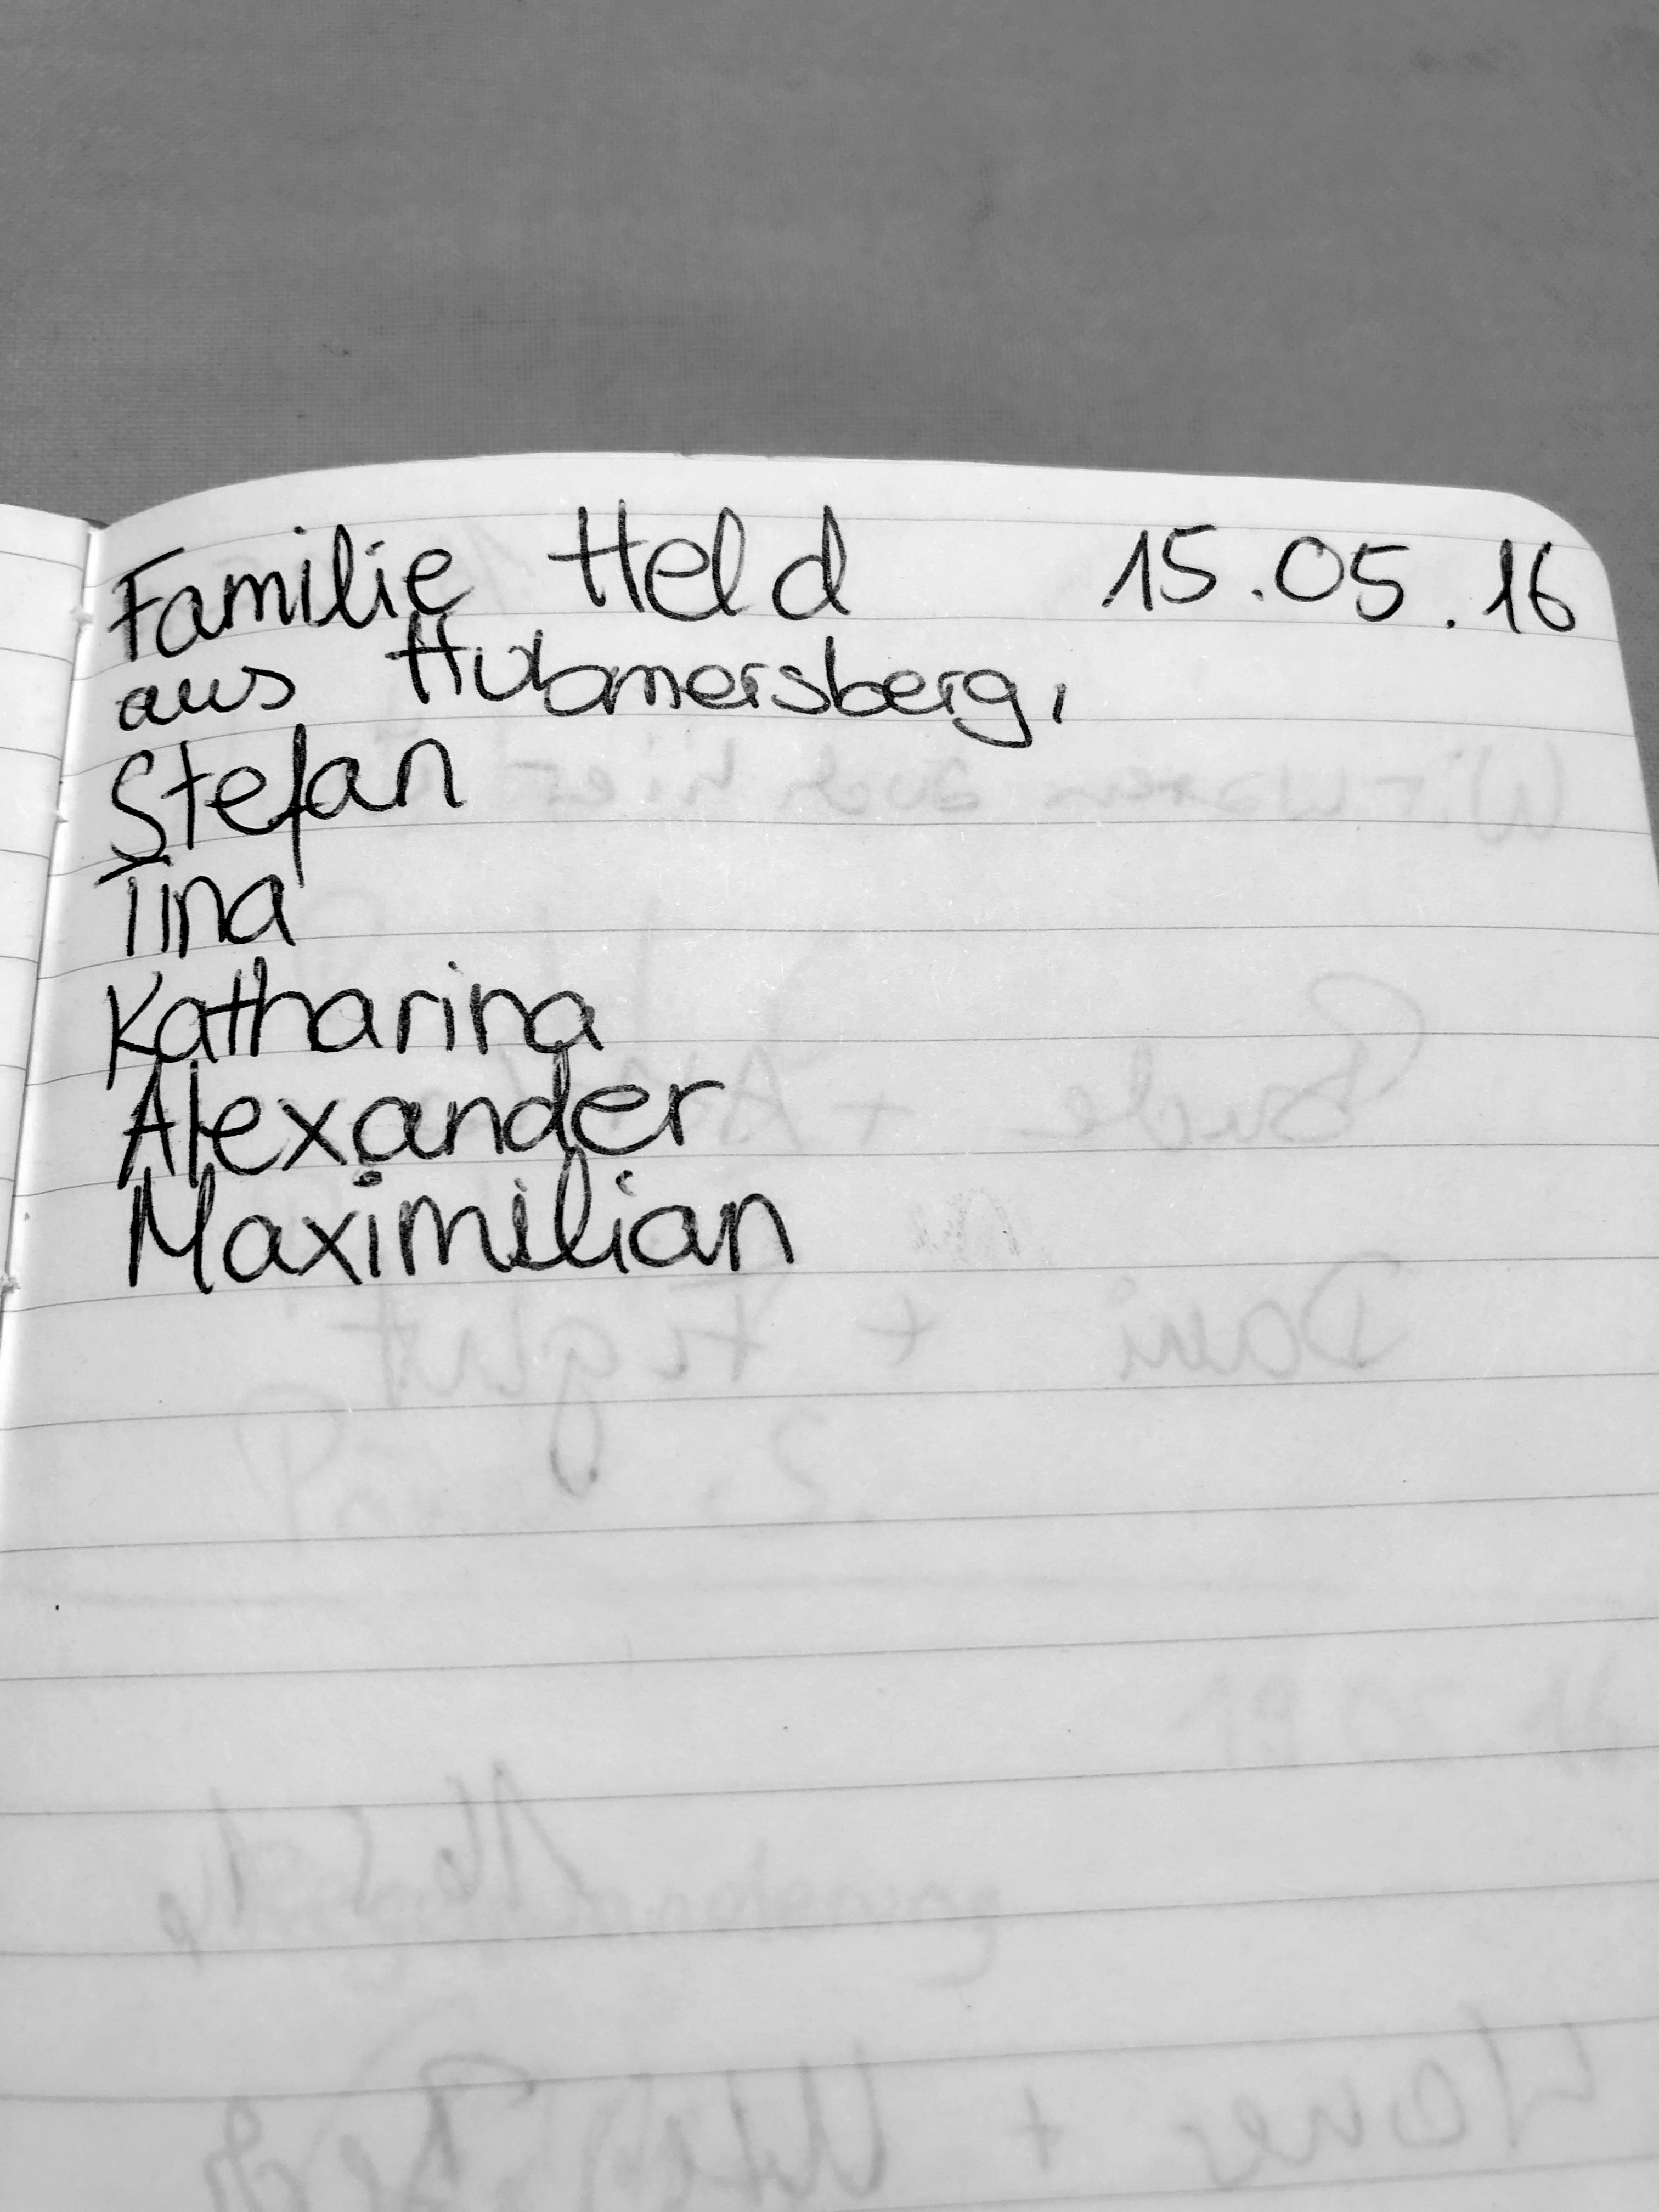 Familie Held 15.05.16
aus Hubmersberg,
Stefan
Tina
Katharina
Alexander
Maximilian